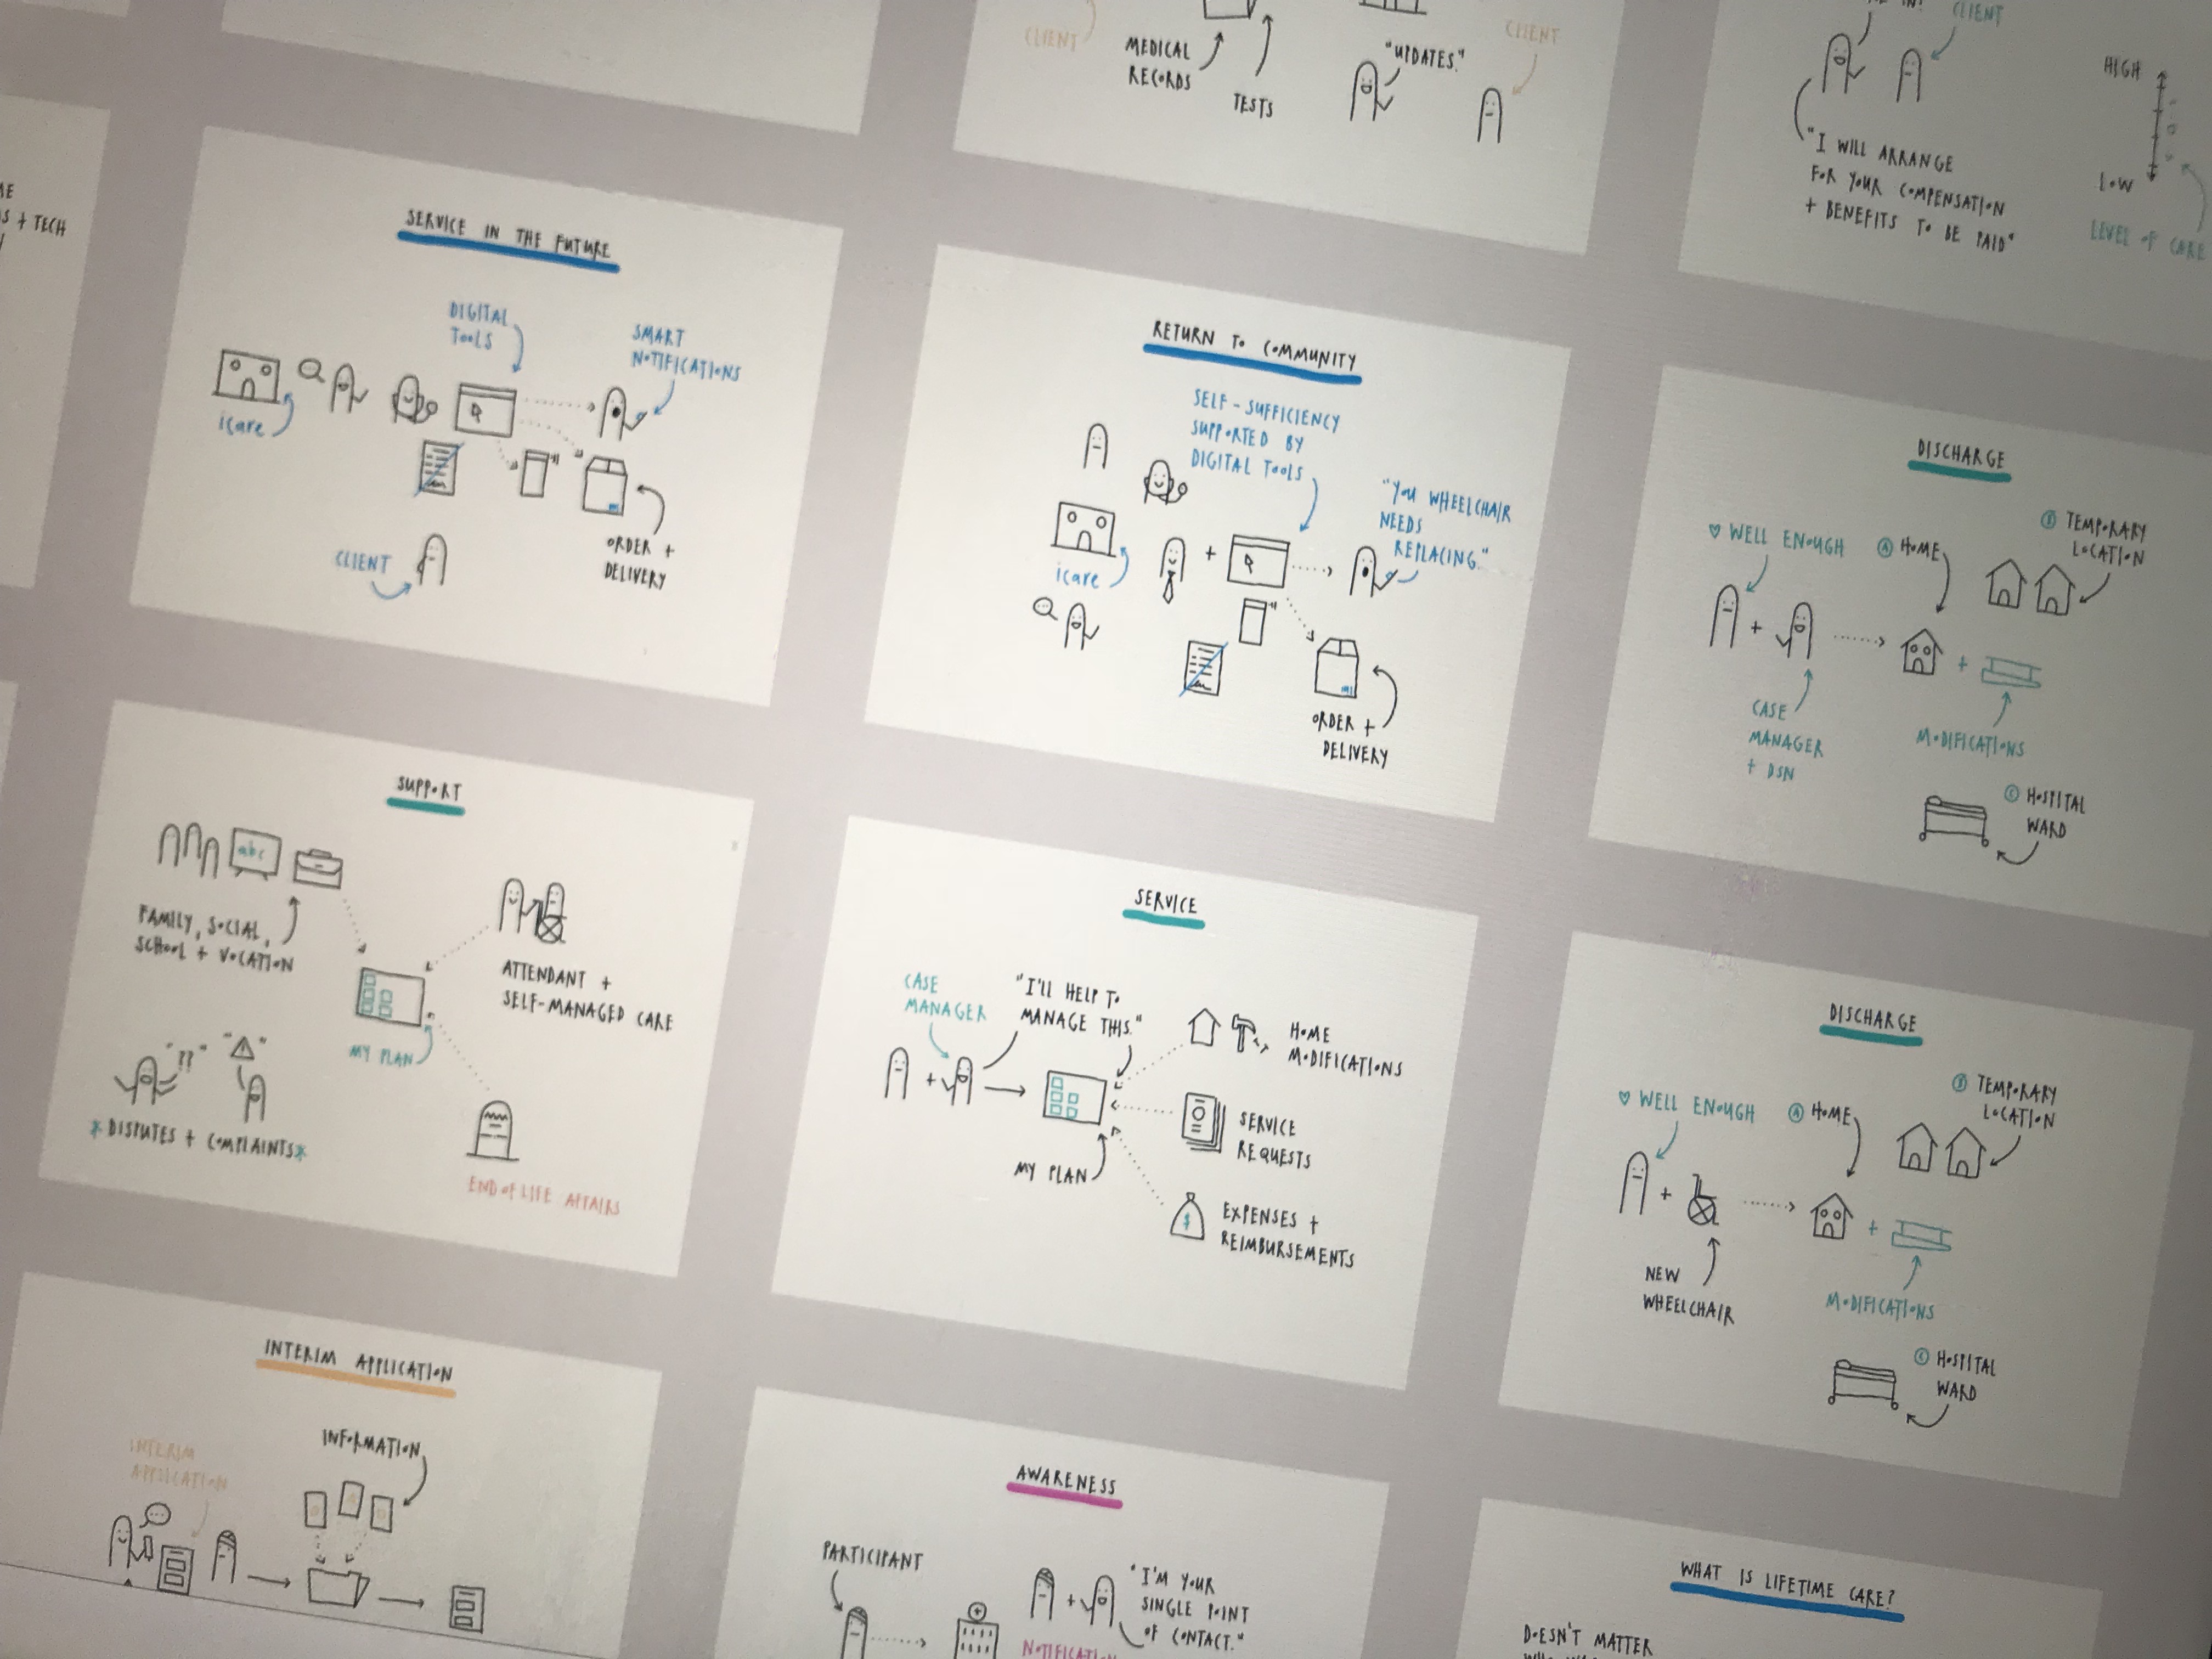 CLIENT
MEDICAL
RECORDS
TESTS
"UPDATES."
CLIENT
CLIENT
"I WILL ARRANGE
FOR YOUR COMPENSATION
+ BENEFITS TO BE PAID"
HIGH
LOW
LEVEL OF CARE
+ TECH
SERVICE IN THE FUTURE
DIGITAL
TOOLS
SMART
NOTIFICATIONS
icare
CLIENT
ORDER +
DELIVERY
RETURN TO COMMUNITY
SELF-SUFFICIENCY
SUPPORTED BY
DIGITAL TOOLS
"YOU WHEELCHAIR
NEEDS
REPLACING."
icare
ORDER +
DELIVERY
DISCHARGE
♡ WELL ENOUGH
Ⓐ HOME
Ⓑ TEMPORARY
LOCATION
CASE
MANAGER
+ DSN
+
+
MODIFICATIONS
Ⓒ HOSPITAL
WARD
SUPPORT
abc
FAMILY, SOCIAL,
SCHOOL + VOCATION
ATTENDANT +
SELF-MANAGED CARE
MY PLAN
"??"
"⚠"
*DISPUTES + COMPLAINTS*
END OF LIFE AFFAIRS
SERVICE
CASE
MANAGER
"I'LL HELP TO
MANAGE THIS."
HOME
MODIFICATIONS
SERVICE
REQUESTS
MY PLAN
$
EXPENSES +
REIMBURSEMENTS
DISCHARGE
♡ WELL ENOUGH
Ⓐ HOME
Ⓑ TEMPORARY
LOCATION
NEW
WHEELCHAIR
+
+
MODIFICATIONS
Ⓒ HOSPITAL
WARD
INTERIM APPLICATION
INTERIM
APPLICATION
INFORMATION
AWARENESS
PARTICIPANT
"I'M YOUR
SINGLE POINT
OF CONTACT."
WHAT IS LIFETIME CARE?
DOESN'T MATTER